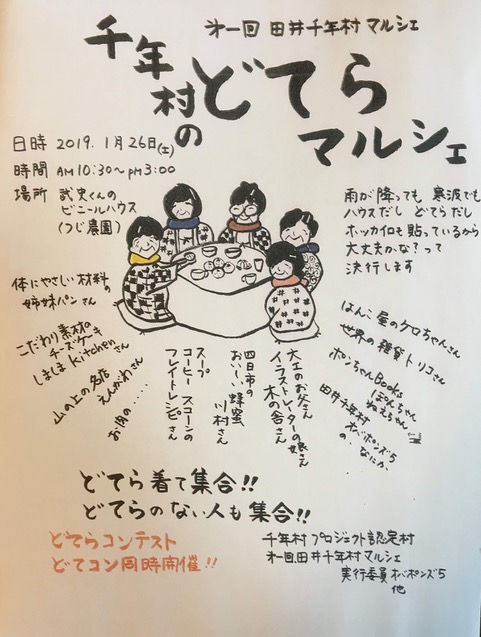 オ一回 田井千年村 マルシェ
千年村の
どてら
マルシェ
日時 2019.1月26日(土)
時間 AM10:30〜PM3:00
場所 武史くんの
ビニールハウス
(つじ農園)
雨が降っても 寒波でも
ハウスだし どてらだし
ホッカイロも貼っているから
大丈夫かな？って
決行します
体にやさしい材料の
姉妹パンさん
こだわり素材の
チーズケーキ
しましまkitchenさん
山の上の名店
えんがわさん
お肉の・・・・
スープ
コーヒー スコーンの
フレイトレシピさん
四日市の
おいしい蜂蜜
川村さん
大工のお父さん
イラストレーターの娘さん
木の舎さん
はんこ屋のケロちゃんさん
世界の雑貨トリコさん
ポンちゃんBooks
ぽんちゃん
ねえちゃん
田井千年村
オバポンズ5
の、なにか
どてら着て集合!!
どてらのない人も集合!!
どてらコンテスト
どてコン同時開催!!
千年村プロジェクト認定村
オ一回田井千年村マルシェ
実行委員オバポンズ5
他